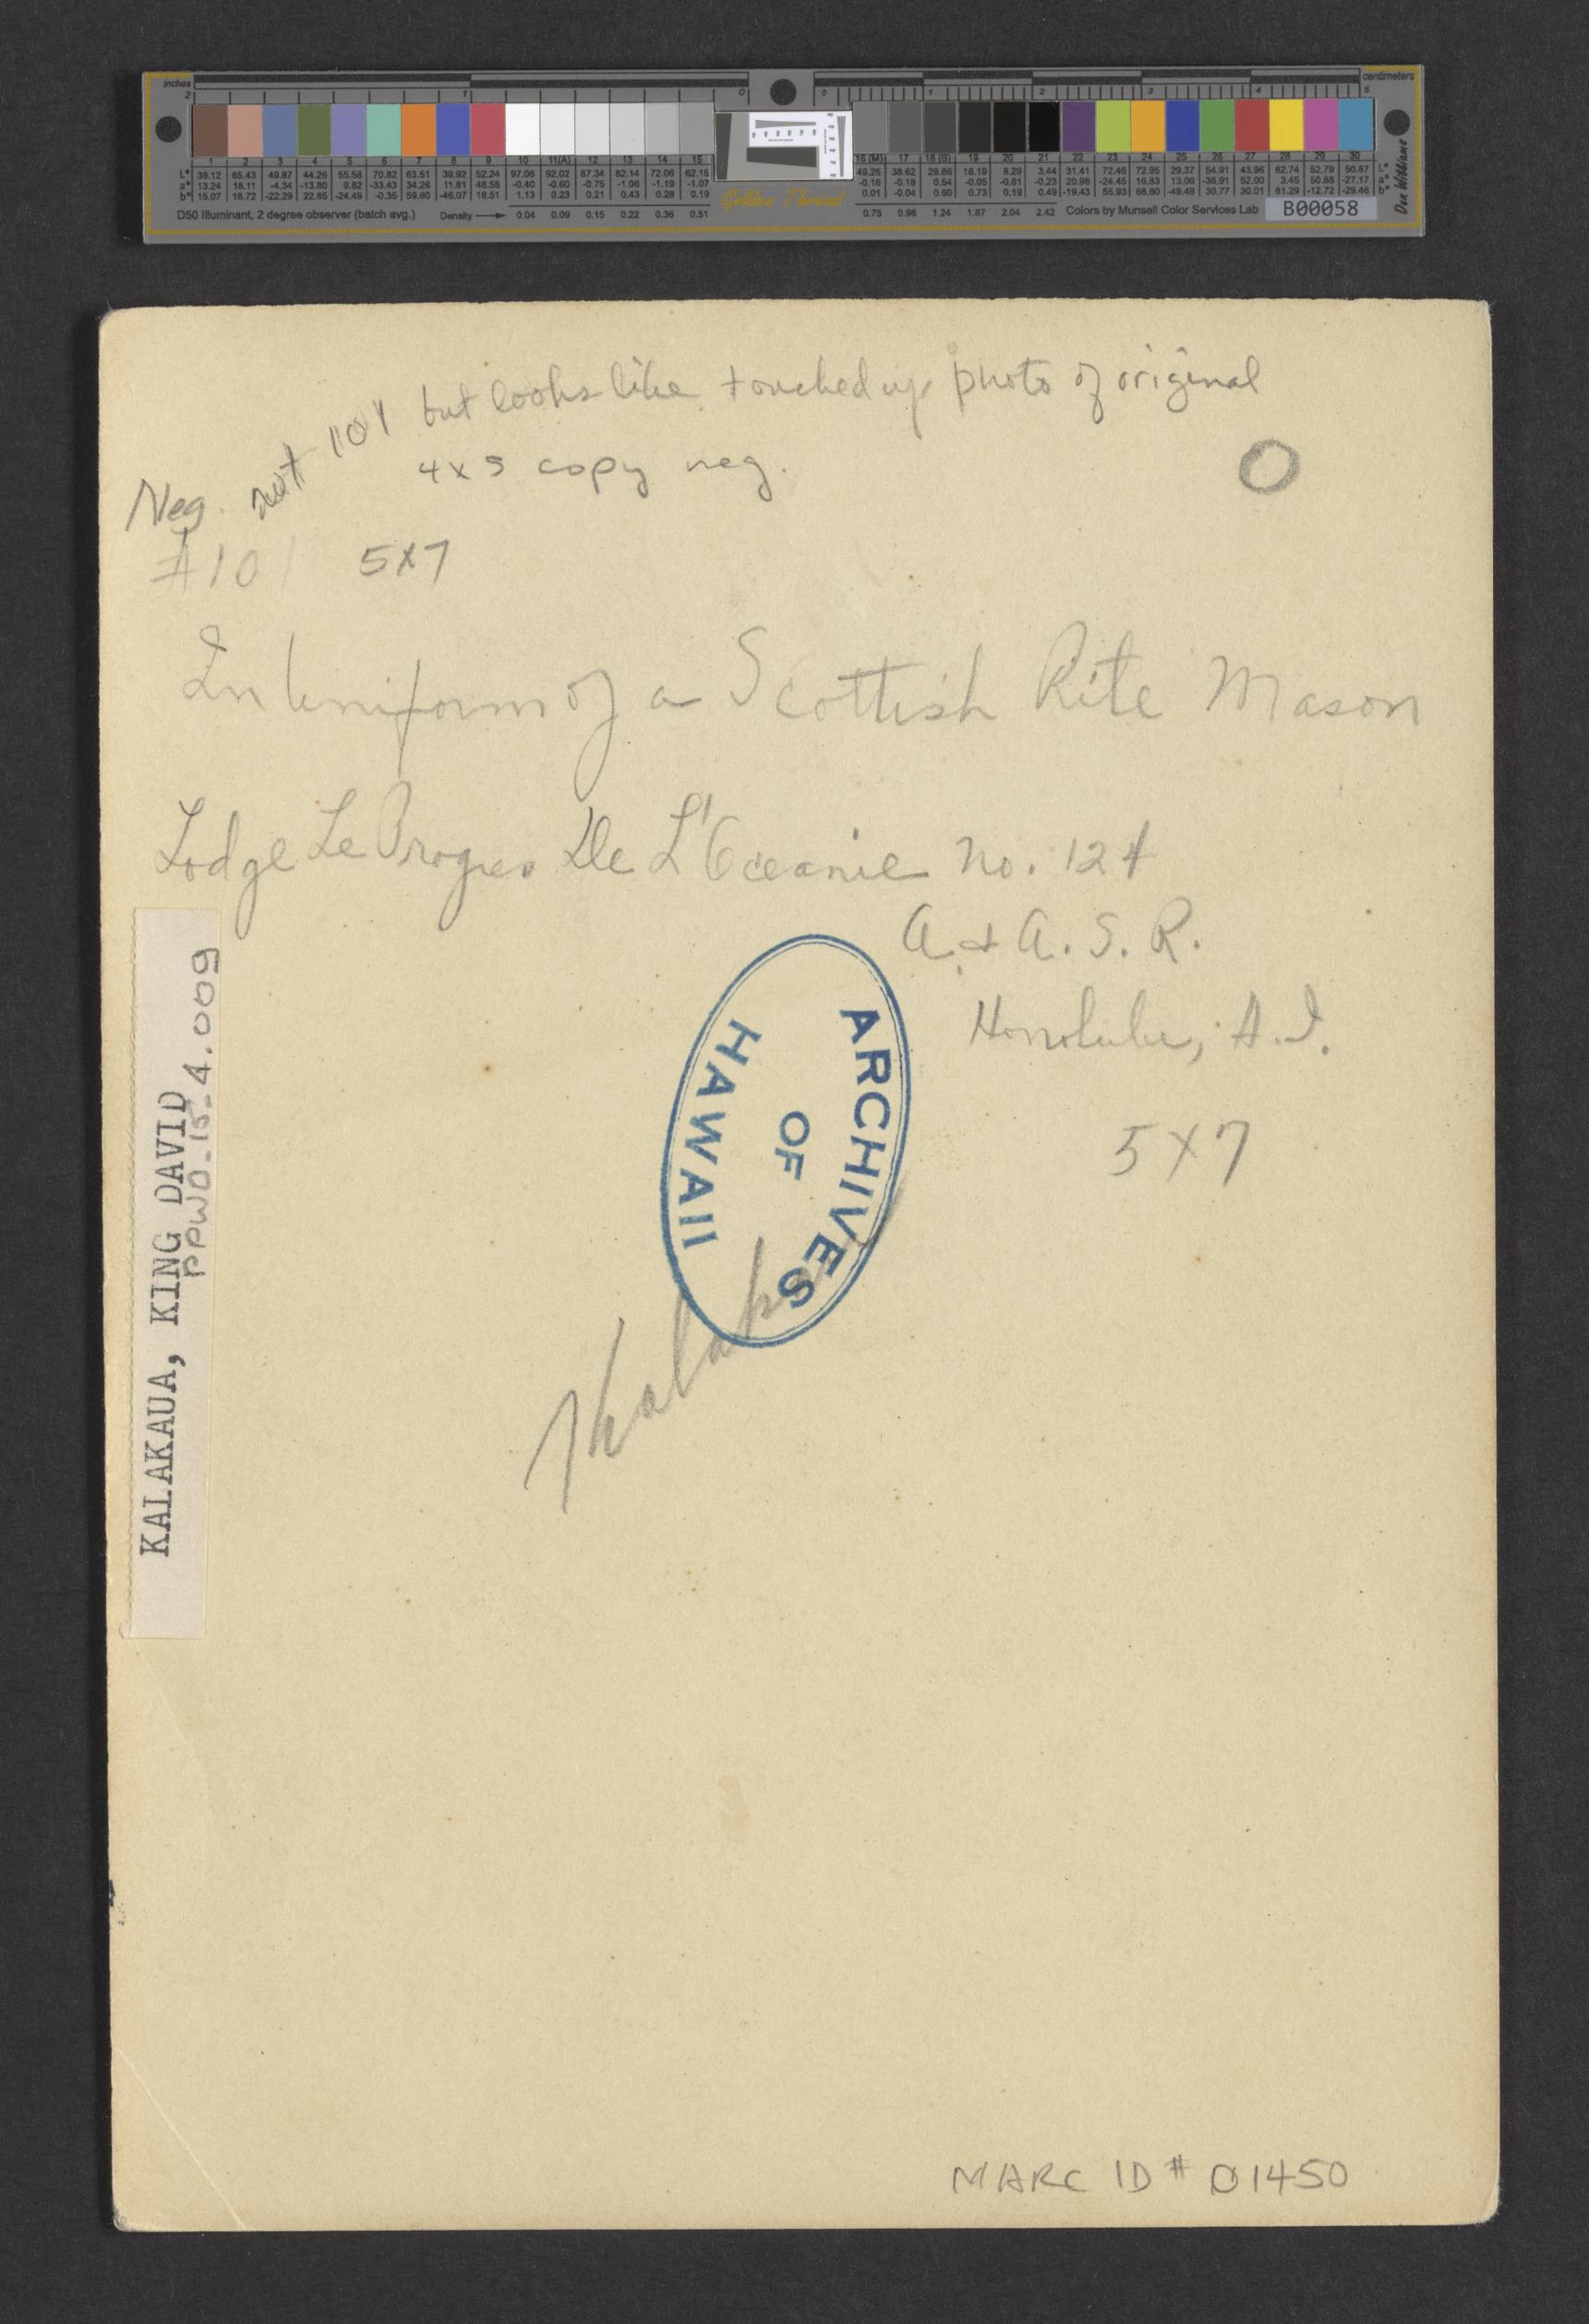 inches
centimeters
2 1 0 0 1 2 3 4 5
1 2 3 4 5 6 7 8 9 10 11(A) 12 13 14 15 16 (M) 17 18 (B) 19 20 21 22 23 24 25 26 27 28 29 30
L* 39.12 65.43 49.87 44.26 55.58 70.82 63.51 39.92 52.24 97.06 92.02 87.34 82.14 72.06 62.15 49.25 38.62 28.86 16.19 8.29 3.44 31.41 72.46 72.95 29.37 54.91 43.96 82.74 52.79 50.87 L*
a* 13.24 18.11 -4.34 -13.80 9.82 -33.43 34.26 11.81 48.55 -0.40 -0.60 -0.75 -1.06 -1.19 -1.07 -0.16 -0.18 0.54 -0.05 -0.81 -0.23 20.98 -24.45 16.83 13.06 -38.91 52.00 3.45 50.88 -27.17 a*
b* 15.07 18.72 -22.29 22.85 -24.49 -0.35 59.60 -46.07 18.51 1.13 0.23 0.21 0.43 0.28 0.19 0.01 -0.04 0.60 0.73 0.19 0.49 -19.43 55.93 68.80 -49.49 30.77 30.01 81.29 -12.72 -29.46 b*
D50 Illuminant, 2 degree observer (batch avg.) Density 0.04 0.09 0.15 0.22 0.36 0.51 Golden Thread 0.75 0.98 1.24 1.87 2.04 2.42 Colors by Munsell Color Services Lab B00058
Don Williams
not 101 but looks like touched up photo of original
4x5 copy neg.
Neg.
#101 5x7
In Uniform of a Scottish Rite Mason
Lodge Le Progres De L'Oceanie No. 124
A. & A. S. R.
Honolulu, H.I.
5x7
ARCHIVES
OF
HAWAII
KALAKAUA, KING DAVID
PPWD-15-4.009
MARC ID # 01450